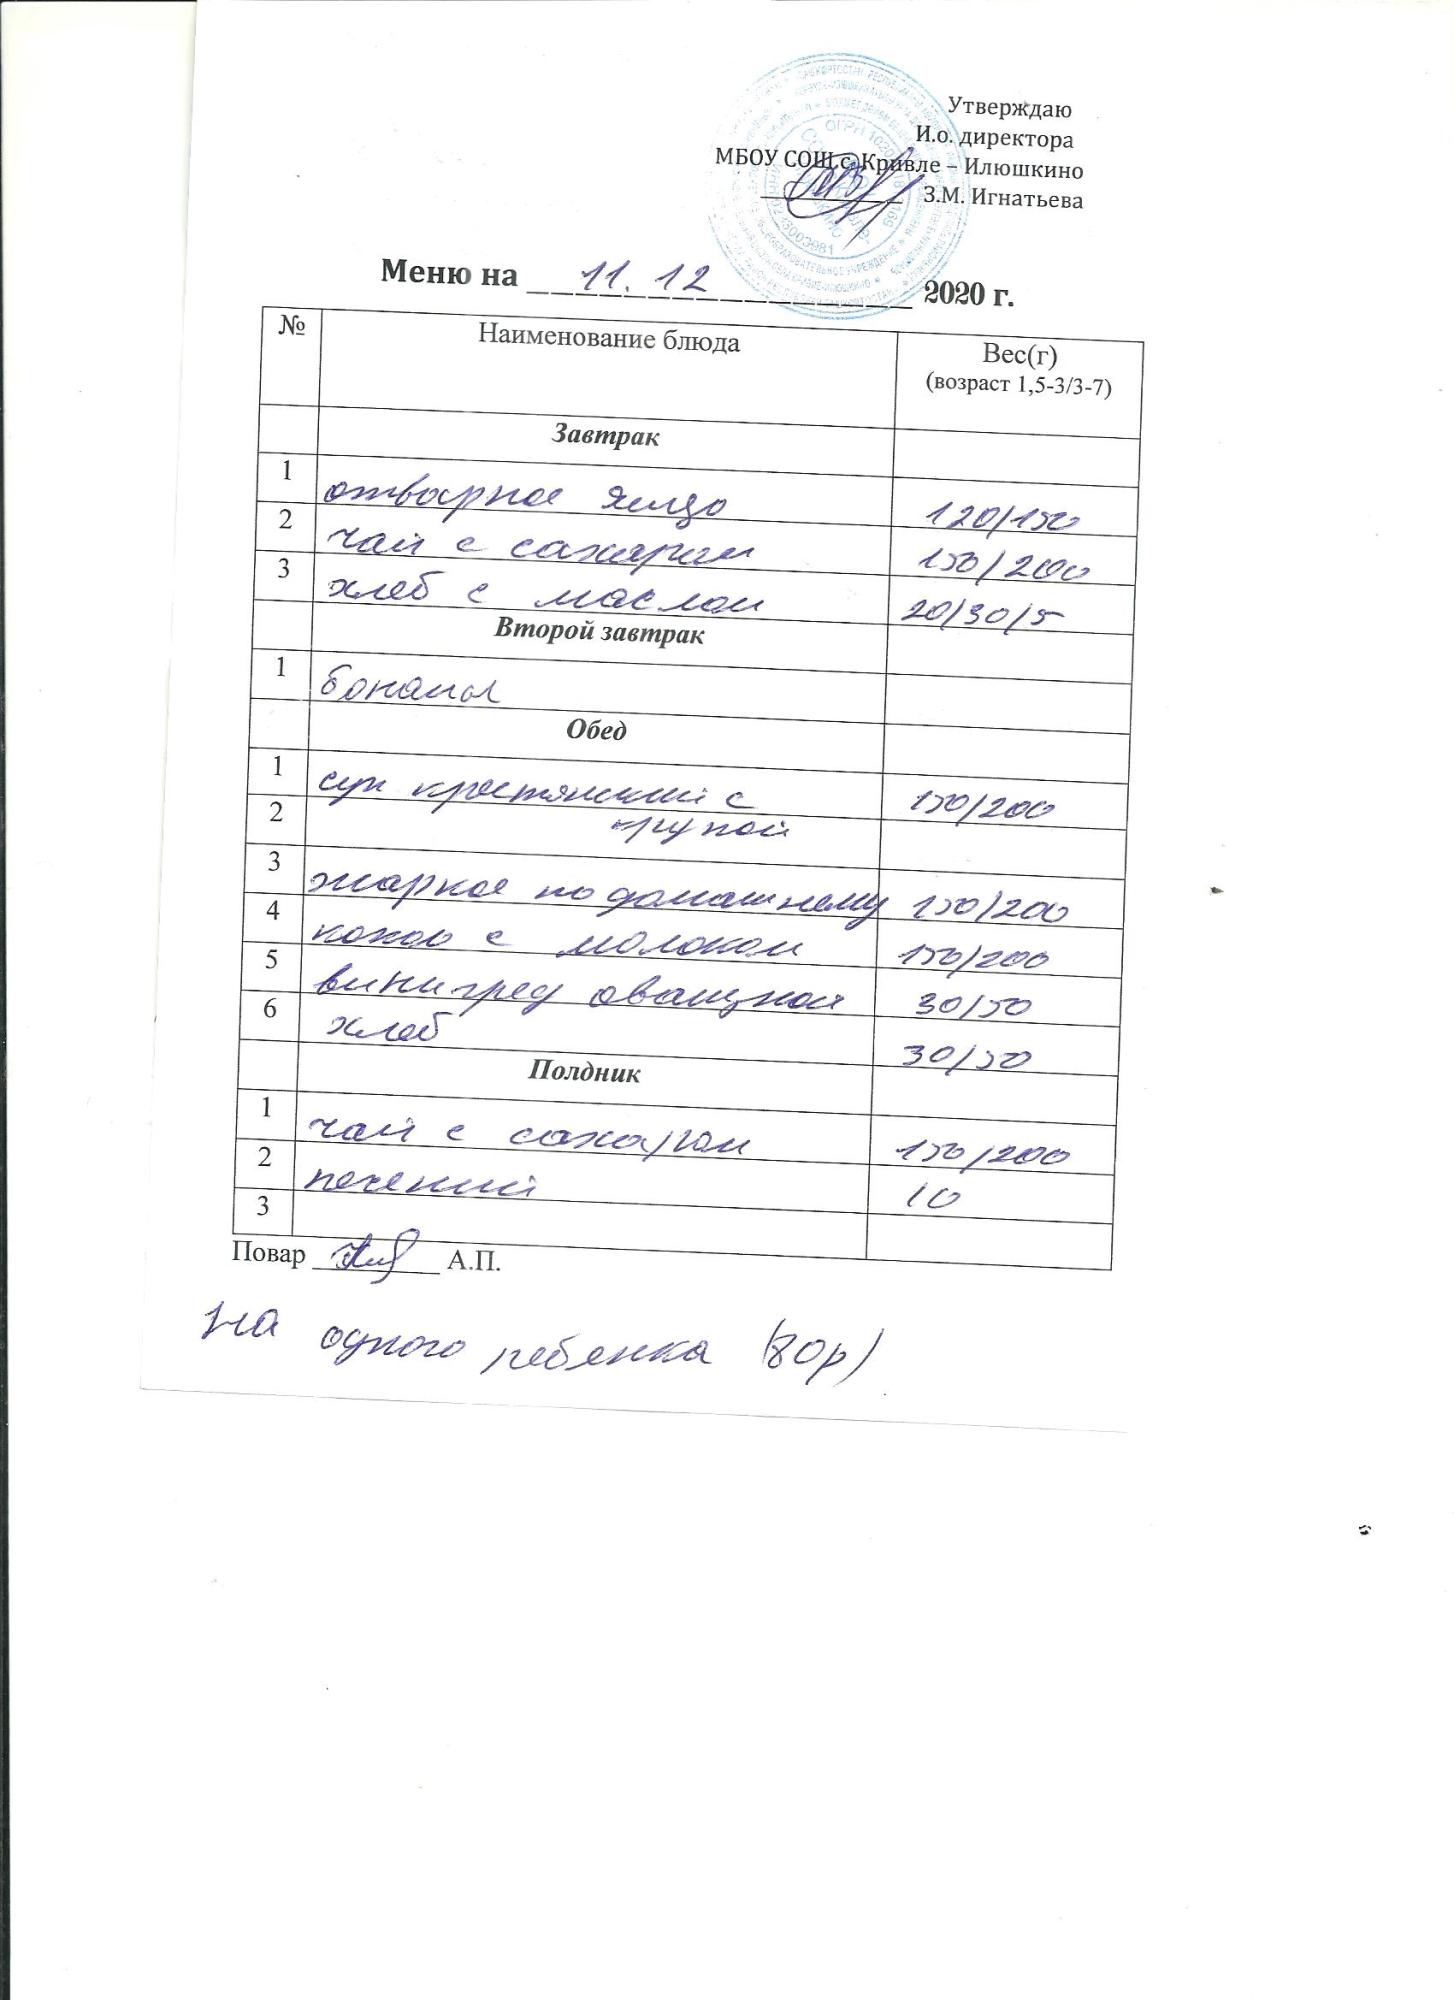 Утверждаю
И.о. директора
МБОУ СОШ с. Кривле – Илюшкино
З.М. Игнатьева
Меню на 11.12 2020 г.
№ Наименование блюда Вес(г)
(возраст 1,5-3/3-7)
Завтрак
1 отварное яицо 120/150
2 чай с сахаром 150/200
3 хлеб с маслом 20/30/5
Второй завтрак
1 бонаны
Обед
1 суп крестянский с 150/200
2 крупой
3 жаркое по домашнему 150/200
4 какао с молоком 150/200
5 винигред оващной 30/50
6 хлеб 30/50
Полдник
1 чай с сахаром 150/200
2 печений 10
3
Повар А.П.
на одного ребянка (80р)